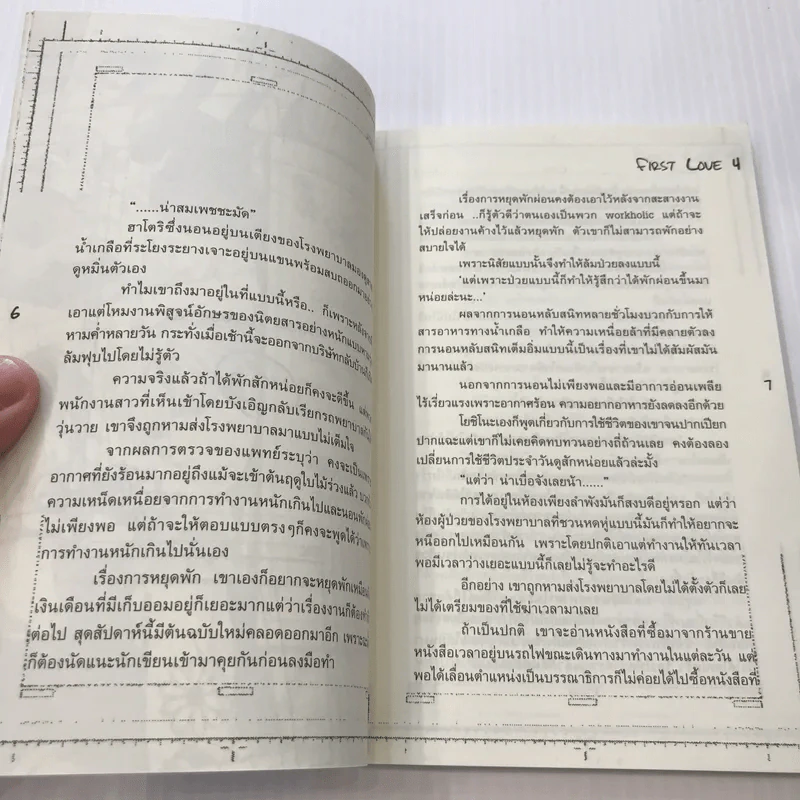 "......น่าสมเพชชะมัด"
ฮาโตริซึ่งนอนอยู่บนเตียงของโรงพยาบาลมองดูสาย
น้ำเกลือที่ระโยงระยางเจาะอยู่บนแขนพร้อมสบถออกมา
ดูหมิ่นตัวเอง
ทำไมเขาถึงมาอยู่ในที่แบบนี้หรือ.. ก็เพราะหลัง
เอาแต่โหมงานพิสูจน์อักษรของนิตยสารอย่างหนักแบบ
หามค่ำหลายวัน กระทั่งเมื่อเช้านี้จะออกจากบริษัทกลับบ้าน
ล้มฟุบไปโดยไม่รู้ตัว
ความจริงแล้วถ้าได้พักสักหน่อยก็คงจะดีขึ้น
พนักงานสาวที่เห็นเข้าโดยบังเอิญกลับเรียกรถพยาบาล
วุ่นวาย เขาจึงถูกหามส่งโรงพยาบาลมาแบบไม่เต็มใจ
จากผลการตรวจของแพทย์ระบุว่า คงจะเป็น
อากาศที่ยังร้อนมากอยู่ถึงแม้จะเข้าต้นฤดูใบไม้ร่วงแล้ว
ความเหน็ดเหนื่อยจากการทำงานหนักเกินไปและนอนพักผ่อน
ไม่เพียงพอ แต่ถ้าจะให้ตอบแบบตรงๆก็คงจะพูดได้ว่า
การทำงานหนักเกินไปนั่นเอง
เรื่องการหยุดพัก เขาเองก็อยากจะหยุดพักเหมือน
เงินเดือนที่มีเก็บออมอยู่ก็เยอะมากแต่ว่าเรื่องงานก็ต้อง
ต่อไป สุดสัปดาห์นี้มีต้นฉบับใหม่คลอดออกมาอีก เพราะ
ก็ต้องนัดแนะนักเขียนเข้ามาคุยกันก่อนลงมือทำ
6
FIRST LOVE 4
เรื่องการหยุดพักผ่อนคงต้องเอาไว้หลังจากสะสางงาน
เสร็จก่อน ..ก็รู้ตัวดีว่าตนเองเป็นพวก workholic แต่ถ้าจะ
ให้ปล่อยงานค้างไว้แล้วหยุดพัก ตัวเขาก็ไม่สามารถพักอย่าง
สบายใจได้
เพราะนิสัยแบบนั้นจึงทำให้ล้มป่วยลงแบบนี้
'แต่เพราะป่วยแบบนี้ก็ทำให้รู้สึกว่าได้พักผ่อนขึ้นมา
หน่อยล่ะนะ...'
ผลจากการนอนหลับสนิทหลายชั่วโมงบวกกับการให้
สารอาหารทางน้ำเกลือ ทำให้ความเหนื่อยล้าที่มีคลายตัวลง
การนอนหลับสนิทเต็มอิ่มแบบนี้เป็นเรื่องที่เขาไม่ได้สัมผัสมัน
มานานแล้ว
นอกจากการนอนไม่เพียงพอและมีอาการอ่อนเพลีย
ไร้เรี่ยวแรงเพราะอากาศร้อน ความอยากอาหารยังลดลงอีกด้วย
โยชิโนะเองก็พูดเกี่ยวกับการใช้ชีวิตของเขาจนปากเปียก
ปากแฉะแต่เขาก็ไม่เคยคิดทบทวนอย่างถี่ถ้วนเลย คงต้องลอง
เปลี่ยนการใช้ชีวิตประจำวันดูสักหน่อยแล้วล่ะมั้ง
"แต่ว่า น่าเบื่อจังเลยน้า......"
การได้อยู่ในห้องเพียงลำพังมันก็สงบดีอยู่หรอก แต่ว่า
ห้องผู้ป่วยของโรงพยาบาลที่ชวนหดหู่แบบนี้มันก็ทำให้อยากจะ
หนีออกไปเหมือนกัน เพราะโดยปกติเอาแต่ทำงานให้ทันเวลา
พอมีเวลาว่างเยอะแบบนี้ก็เลยไม่รู้จะทำอะไรดี
อีกอย่าง เขาถูกหามส่งโรงพยาบาลโดยไม่ได้ตั้งตัวก็เลย
ไม่ได้เตรียมของที่ใช้ฆ่าเวลามาเลย
ถ้าเป็นปกติ เขาจะอ่านหนังสือที่ซื้อมาจากร้านขาย
หนังสือเวลาอยู่บนรถไฟขณะเดินทางมาทำงานในแต่ละวัน แต่
พอได้เลื่อนตำแหน่งเป็นบรรณาธิการก็ไม่ค่อยได้ไปซื้อหนังสือที่
7